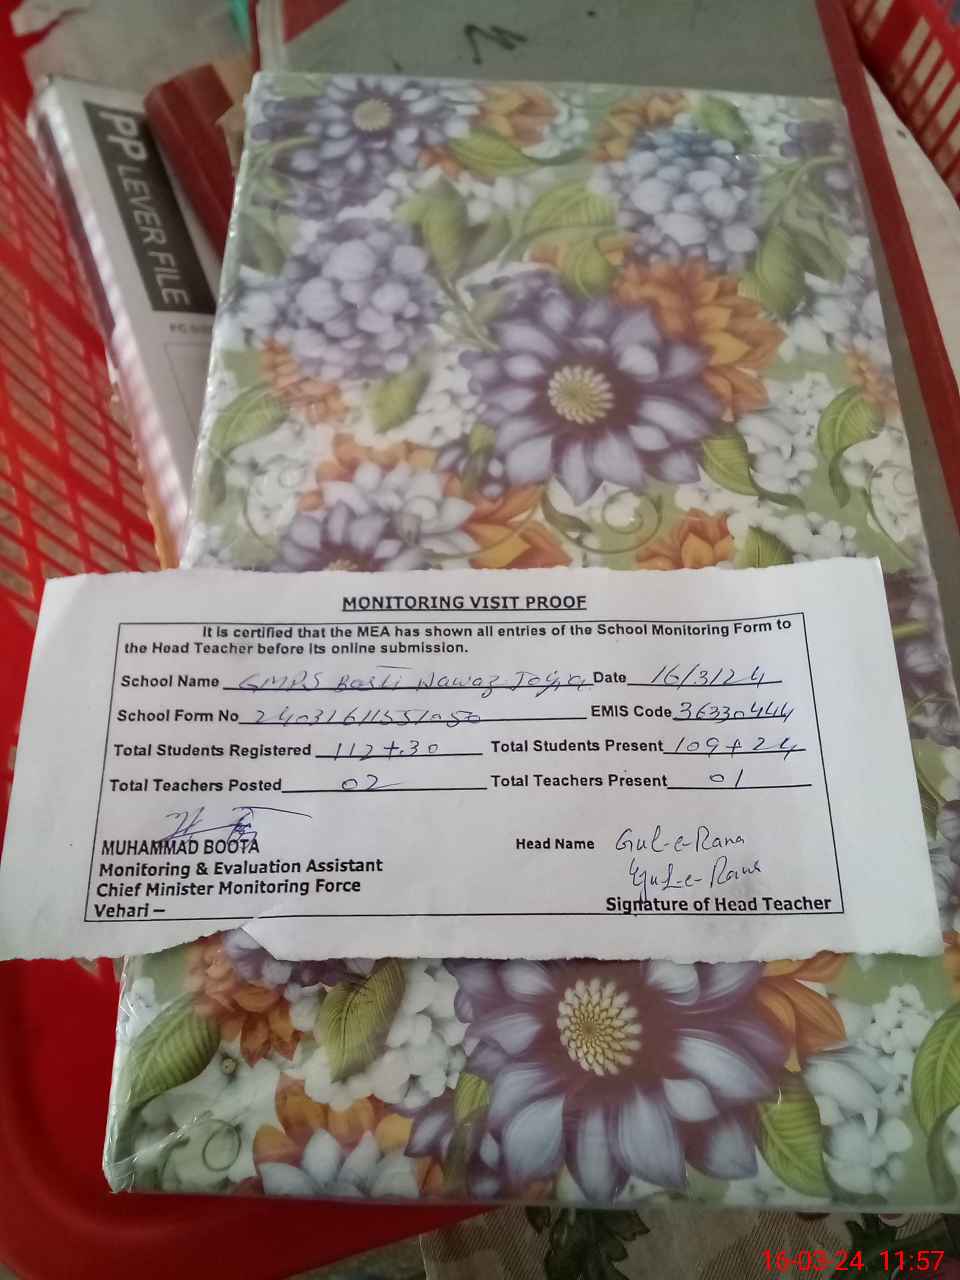 PP LEVER FILE
MONITORING VISIT PROOF
It is certified that the MEA has shown all entries of the School Monitoring Form to
the Head Teacher before its online submission.
School Name GMPS Basti Nawaz Date 16/3/24
School Form No EMIS Code 36330444
Total Students Registered 112+30 Total Students Present 109+24
Total Teachers Posted 02 Total Teachers Present 01
MUHAMMAD BOOTA Head Name Gul-e-Rana
Monitoring & Evaluation Assistant Gul-e-Rana
Chief Minister Monitoring Force
Vehari – Signature of Head Teacher
16-03-24 11:57